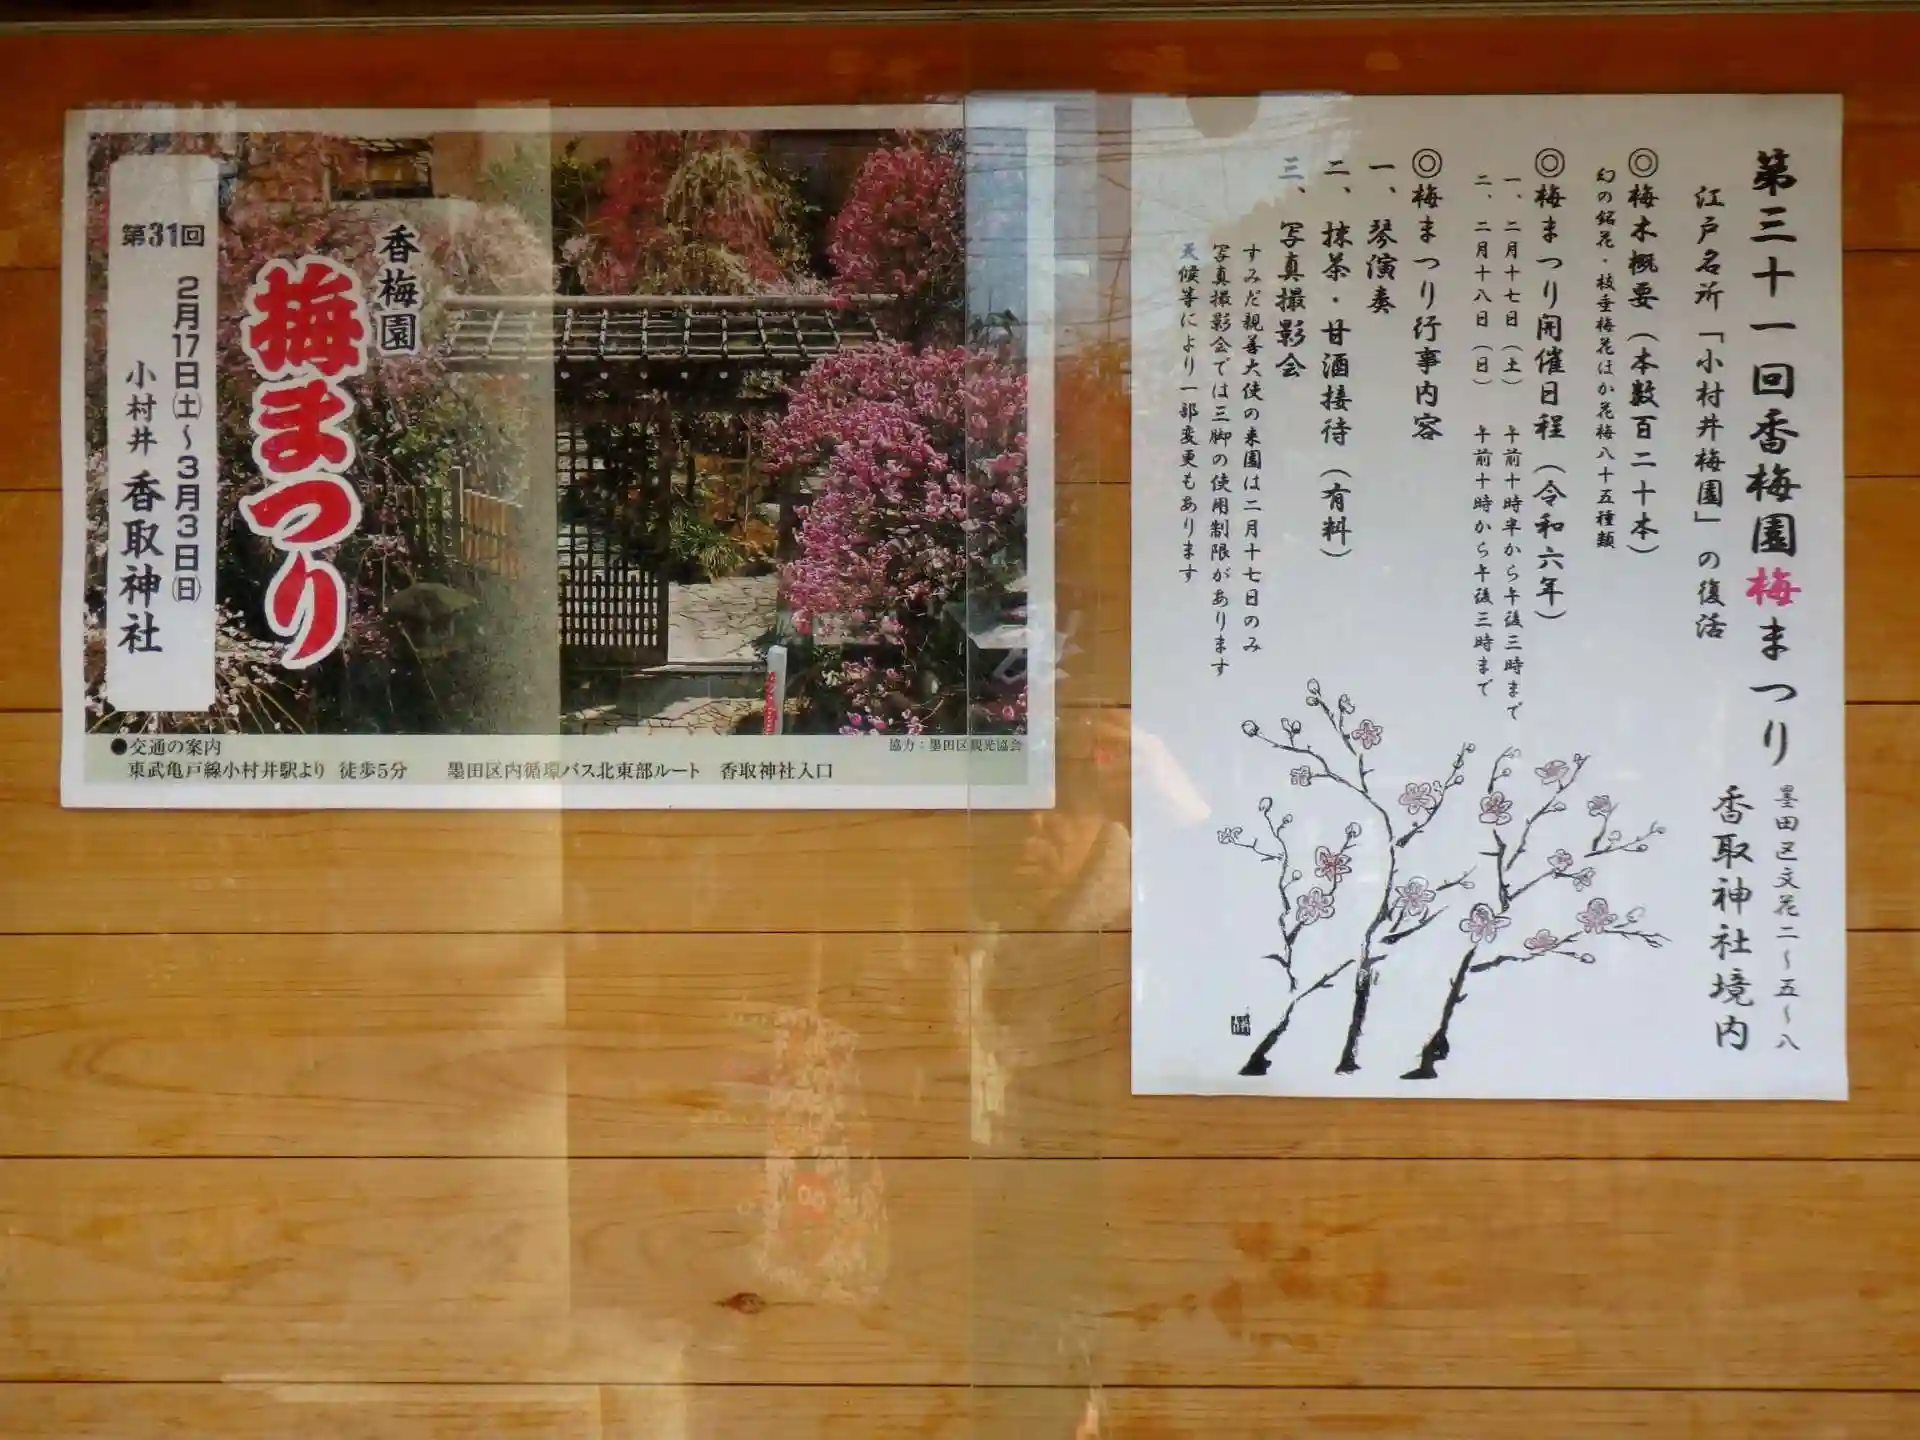 香梅園
梅まつり
第31回
2月17日(土)～3月3日(日)
小村井 香取神社
●交通の案内
協力：墨田区観光協会
東武亀戸線小村井駅より 徒歩5分 墨田区内循環バス北東部ルート 香取神社入口
第三十一回香梅園梅まつり
墨田区文花二～五～八
香取神社境内
江戸名所「小村井梅園」の復活
◎梅木概要（本数百二十本）
幻の銘花・枝垂梅花ほか花梅八十五種類
◎梅まつり開催日程（令和六年）
一、二月十七日（土） 午前十時半から午後三時まで
二、二月十八日（日） 午前十時から午後三時まで
◎梅まつり行事内容
一、琴演奏
二、抹茶・甘酒接待（有料）
三、写真撮影会
すみだ親善大使の来園は二月十七日のみ
写真撮影会では三脚の使用制限があります
天候等により一部変更もあります